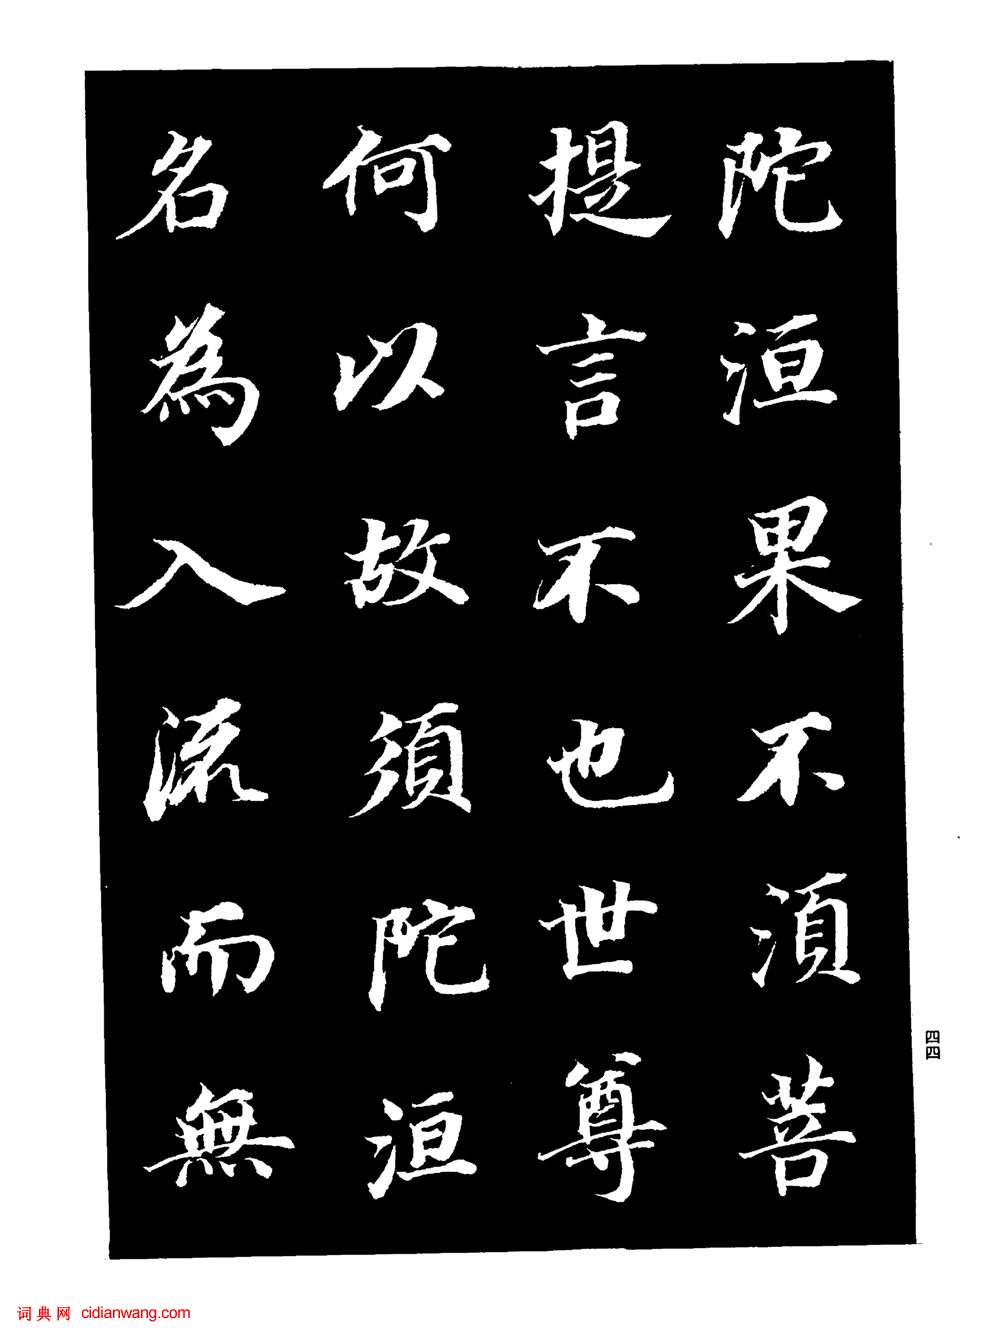 陀洹果不須菩
提言不也世尊
何以故須陀洹
名為入流而無
四四
词典网 cidianwang.com